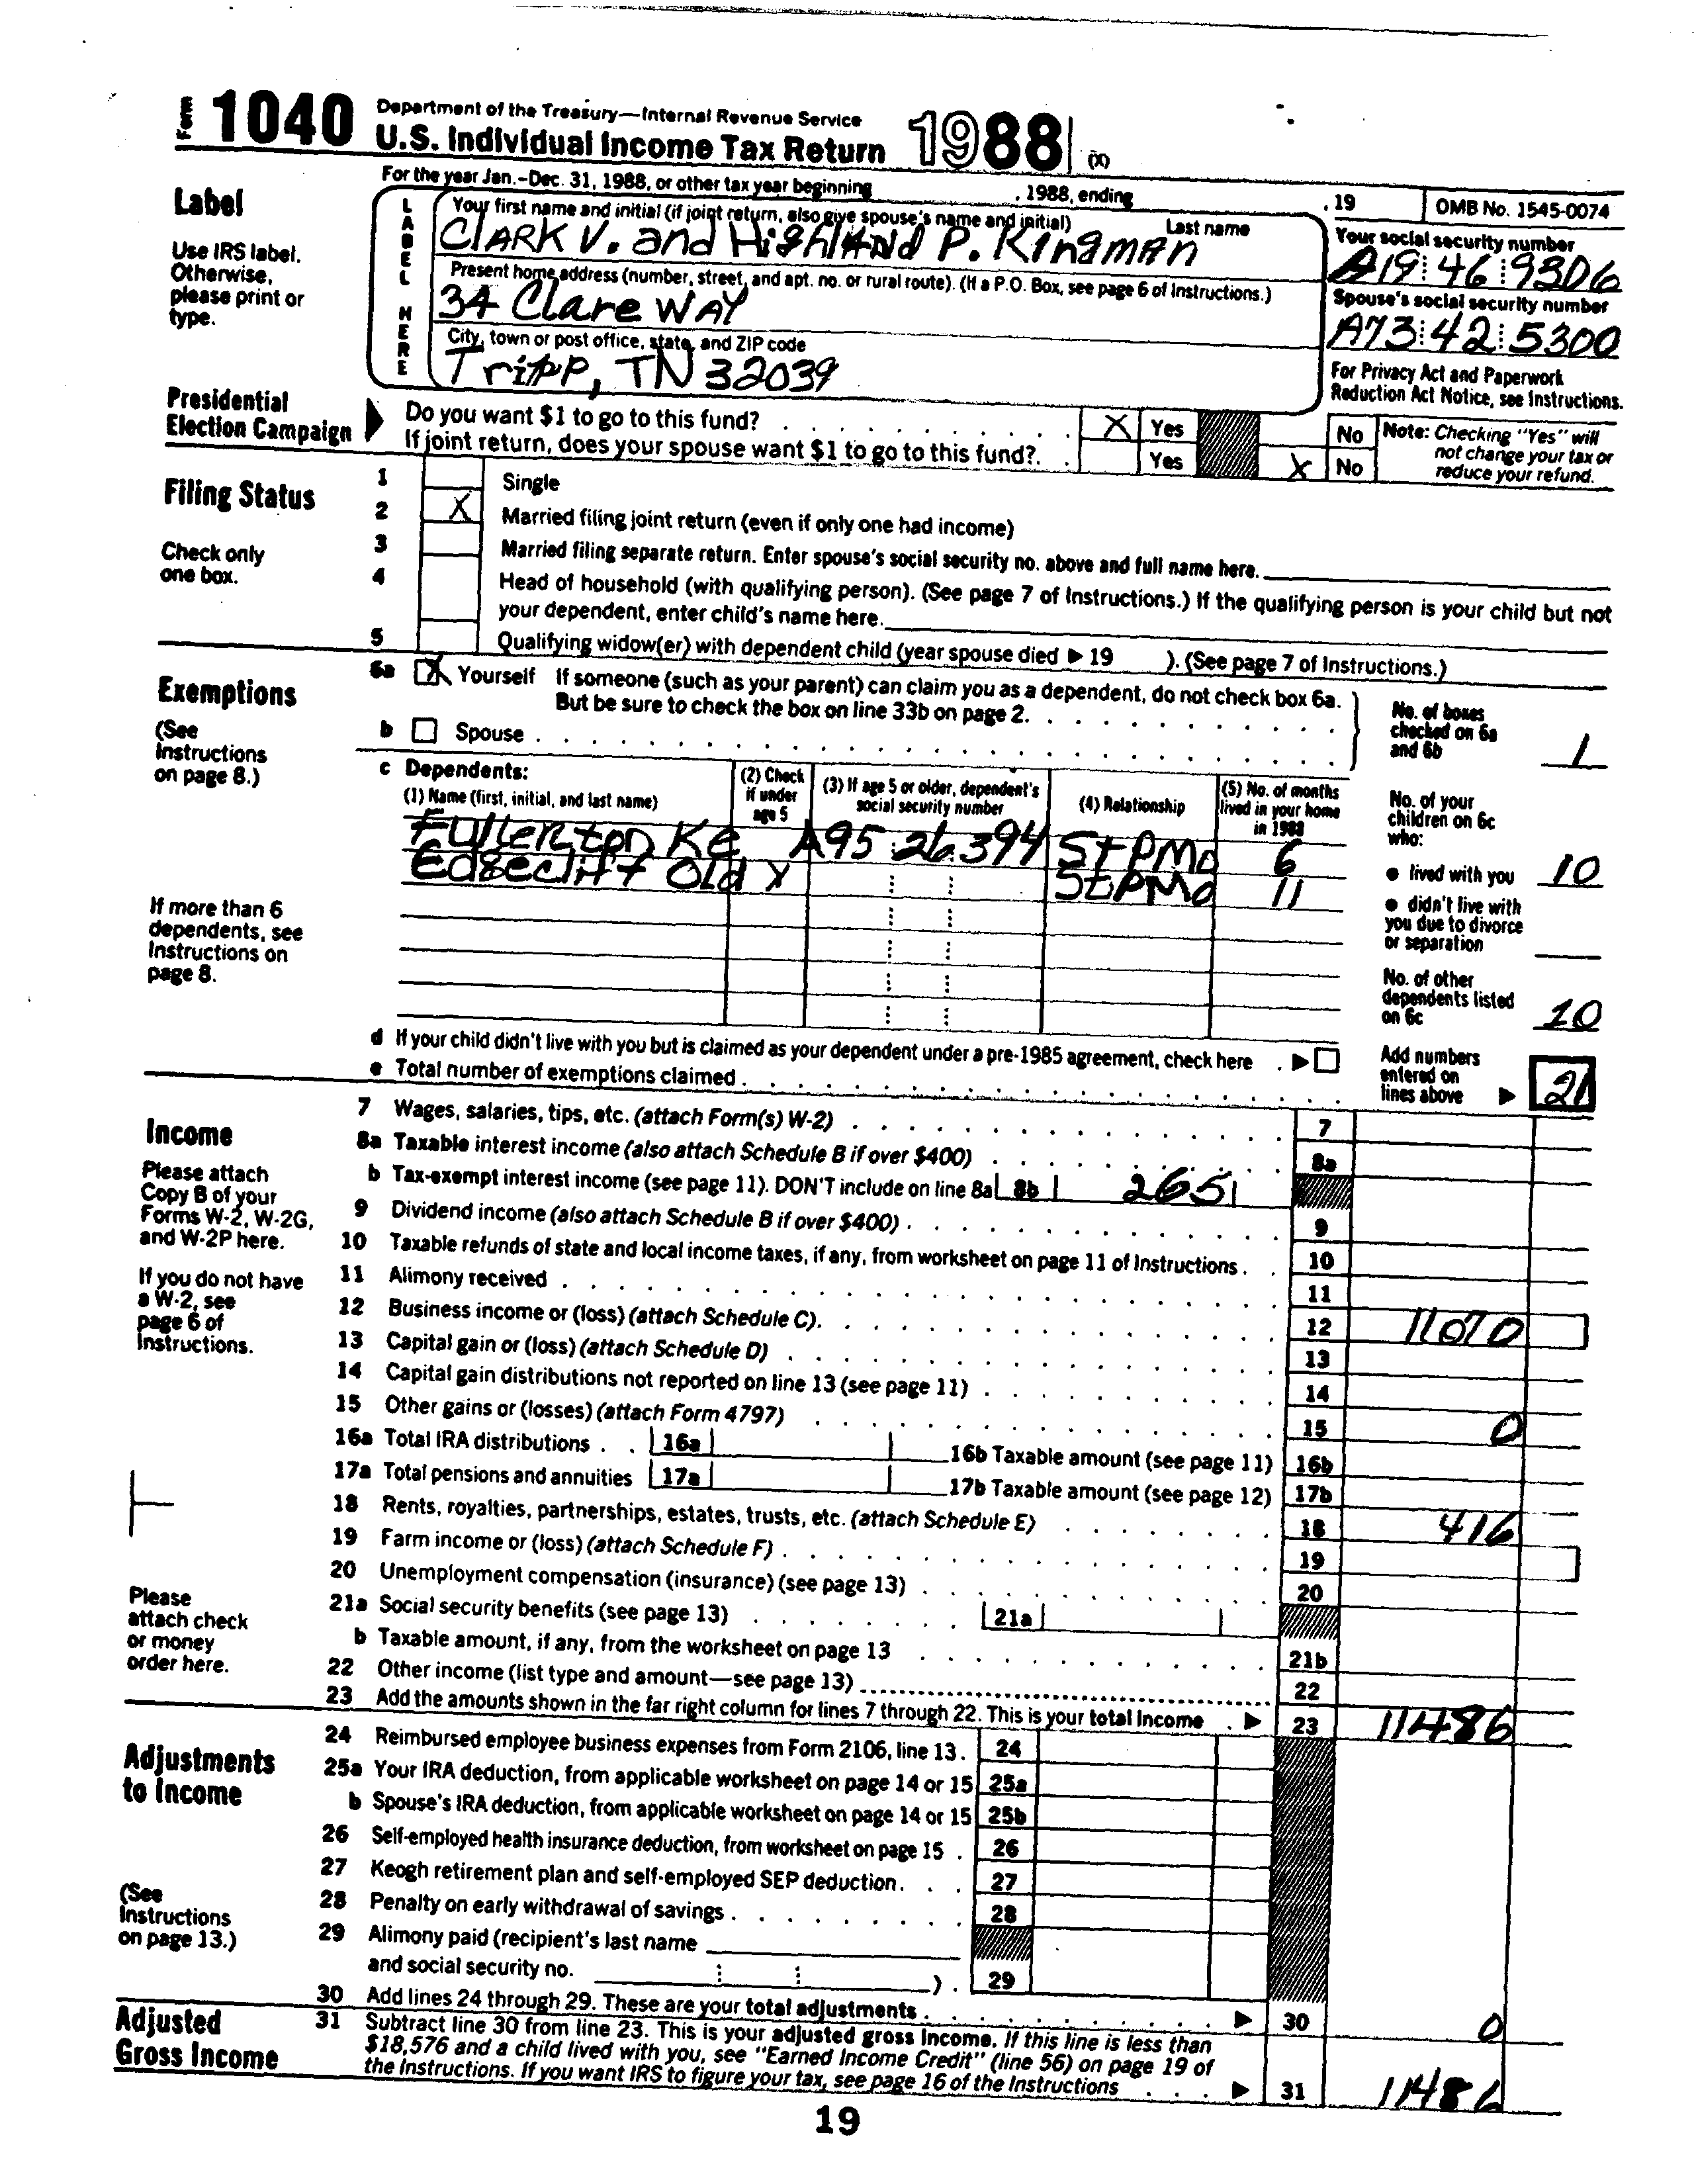 Form 1040 Department of the Treasury—Internal Revenue Service
U.S. Individual Income Tax Return 1988 (X)
For the year Jan.–Dec. 31, 1988, or other tax year beginning , 1988, ending , 19 OMB No. 1545-0074
Label
Use IRS label. Otherwise, please print or type.
LABEL HERE
Your first name and initial (if joint return, also give spouse's name and initial) Last name
CLARK V. and HighlAND P. KingmAn
Your social security number
A19 46 9306
Present home address (number, street, and apt. no. or rural route). (If a P.O. Box, see page 6 of Instructions.)
34 Clare WAY
Spouse's social security number
A73 42 5300
City, town or post office, state, and ZIP code
Tripp, TN 32039
For Privacy Act and Paperwork Reduction Act Notice, see Instructions.
Presidential Election Campaign
Do you want $1 to go to this fund? X Yes No
If joint return, does your spouse want $1 to go to this fund? Yes X No
Note: Checking "Yes" will not change your tax or reduce your refund.
Filing Status
Check only one box.
1 Single
2 X Married filing joint return (even if only one had income)
3 Married filing separate return. Enter spouse's social security no. above and full name here.
4 Head of household (with qualifying person). (See page 7 of Instructions.) If the qualifying person is your child but not
your dependent, enter child's name here.
5 Qualifying widow(er) with dependent child (year spouse died ▶ 19 ). (See page 7 of Instructions.)
Exemptions
(See Instructions on page 8.)
6a X Yourself If someone (such as your parent) can claim you as a dependent, do not check box 6a.
But be sure to check the box on line 33b on page 2.
b Spouse
No. of boxes checked on 6a and 6b 1
c Dependents:
(1) Name (first, initial, and last name)
(2) Check if under age 5
(3) If age 5 or older, dependent's social security number
(4) Relationship
(5) No. of months lived in your home in 1988
Fullerton Ke A95 26 394 StPMo 6
Edgecliff Old X StPMo 11
If more than 6 dependents, see Instructions on page 8.
No. of your children on 6c who:
● lived with you 10
● didn't live with you due to divorce or separation
No. of other dependents listed on 6c 10
d If your child didn't live with you but is claimed as your dependent under a pre-1985 agreement, check here ▶
e Total number of exemptions claimed
Add numbers entered on lines above ▶ 21
Income
Please attach Copy B of your Forms W-2, W-2G, and W-2P here.
If you do not have a W-2, see page 6 of Instructions.
Please attach check or money order here.
7 Wages, salaries, tips, etc. (attach Form(s) W-2) 7
8a Taxable interest income (also attach Schedule B if over $400) 8a
b Tax-exempt interest income (see page 11). DON'T include on line 8a 8b 2651
9 Dividend income (also attach Schedule B if over $400) 9
10 Taxable refunds of state and local income taxes, if any, from worksheet on page 11 of Instructions 10
11 Alimony received 11
12 Business income or (loss) (attach Schedule C) 12 11070
13 Capital gain or (loss) (attach Schedule D) 13
14 Capital gain distributions not reported on line 13 (see page 11) 14
15 Other gains or (losses) (attach Form 4797) 15 0
16a Total IRA distributions 16a 16b Taxable amount (see page 11) 16b
17a Total pensions and annuities 17a 17b Taxable amount (see page 12) 17b
18 Rents, royalties, partnerships, estates, trusts, etc. (attach Schedule E) 18 416
19 Farm income or (loss) (attach Schedule F) 19
20 Unemployment compensation (insurance) (see page 13) 20
21a Social security benefits (see page 13) 21a
b Taxable amount, if any, from the worksheet on page 13 21b
22 Other income (list type and amount—see page 13) 22
23 Add the amounts shown in the far right column for lines 7 through 22. This is your total income ▶ 23 11486
Adjustments to Income
(See Instructions on page 13.)
24 Reimbursed employee business expenses from Form 2106, line 13. 24
25a Your IRA deduction, from applicable worksheet on page 14 or 15 25a
b Spouse's IRA deduction, from applicable worksheet on page 14 or 15 25b
26 Self-employed health insurance deduction, from worksheet on page 15 26
27 Keogh retirement plan and self-employed SEP deduction 27
28 Penalty on early withdrawal of savings 28
29 Alimony paid (recipient's last name
and social security no. ) 29
30 Add lines 24 through 29. These are your total adjustments ▶ 30 0
Adjusted Gross Income
31 Subtract line 30 from line 23. This is your adjusted gross income. If this line is less than
$18,576 and a child lived with you, see "Earned Income Credit" (line 56) on page 19 of
the Instructions. If you want IRS to figure your tax, see page 16 of the Instructions ▶ 31 11486
19